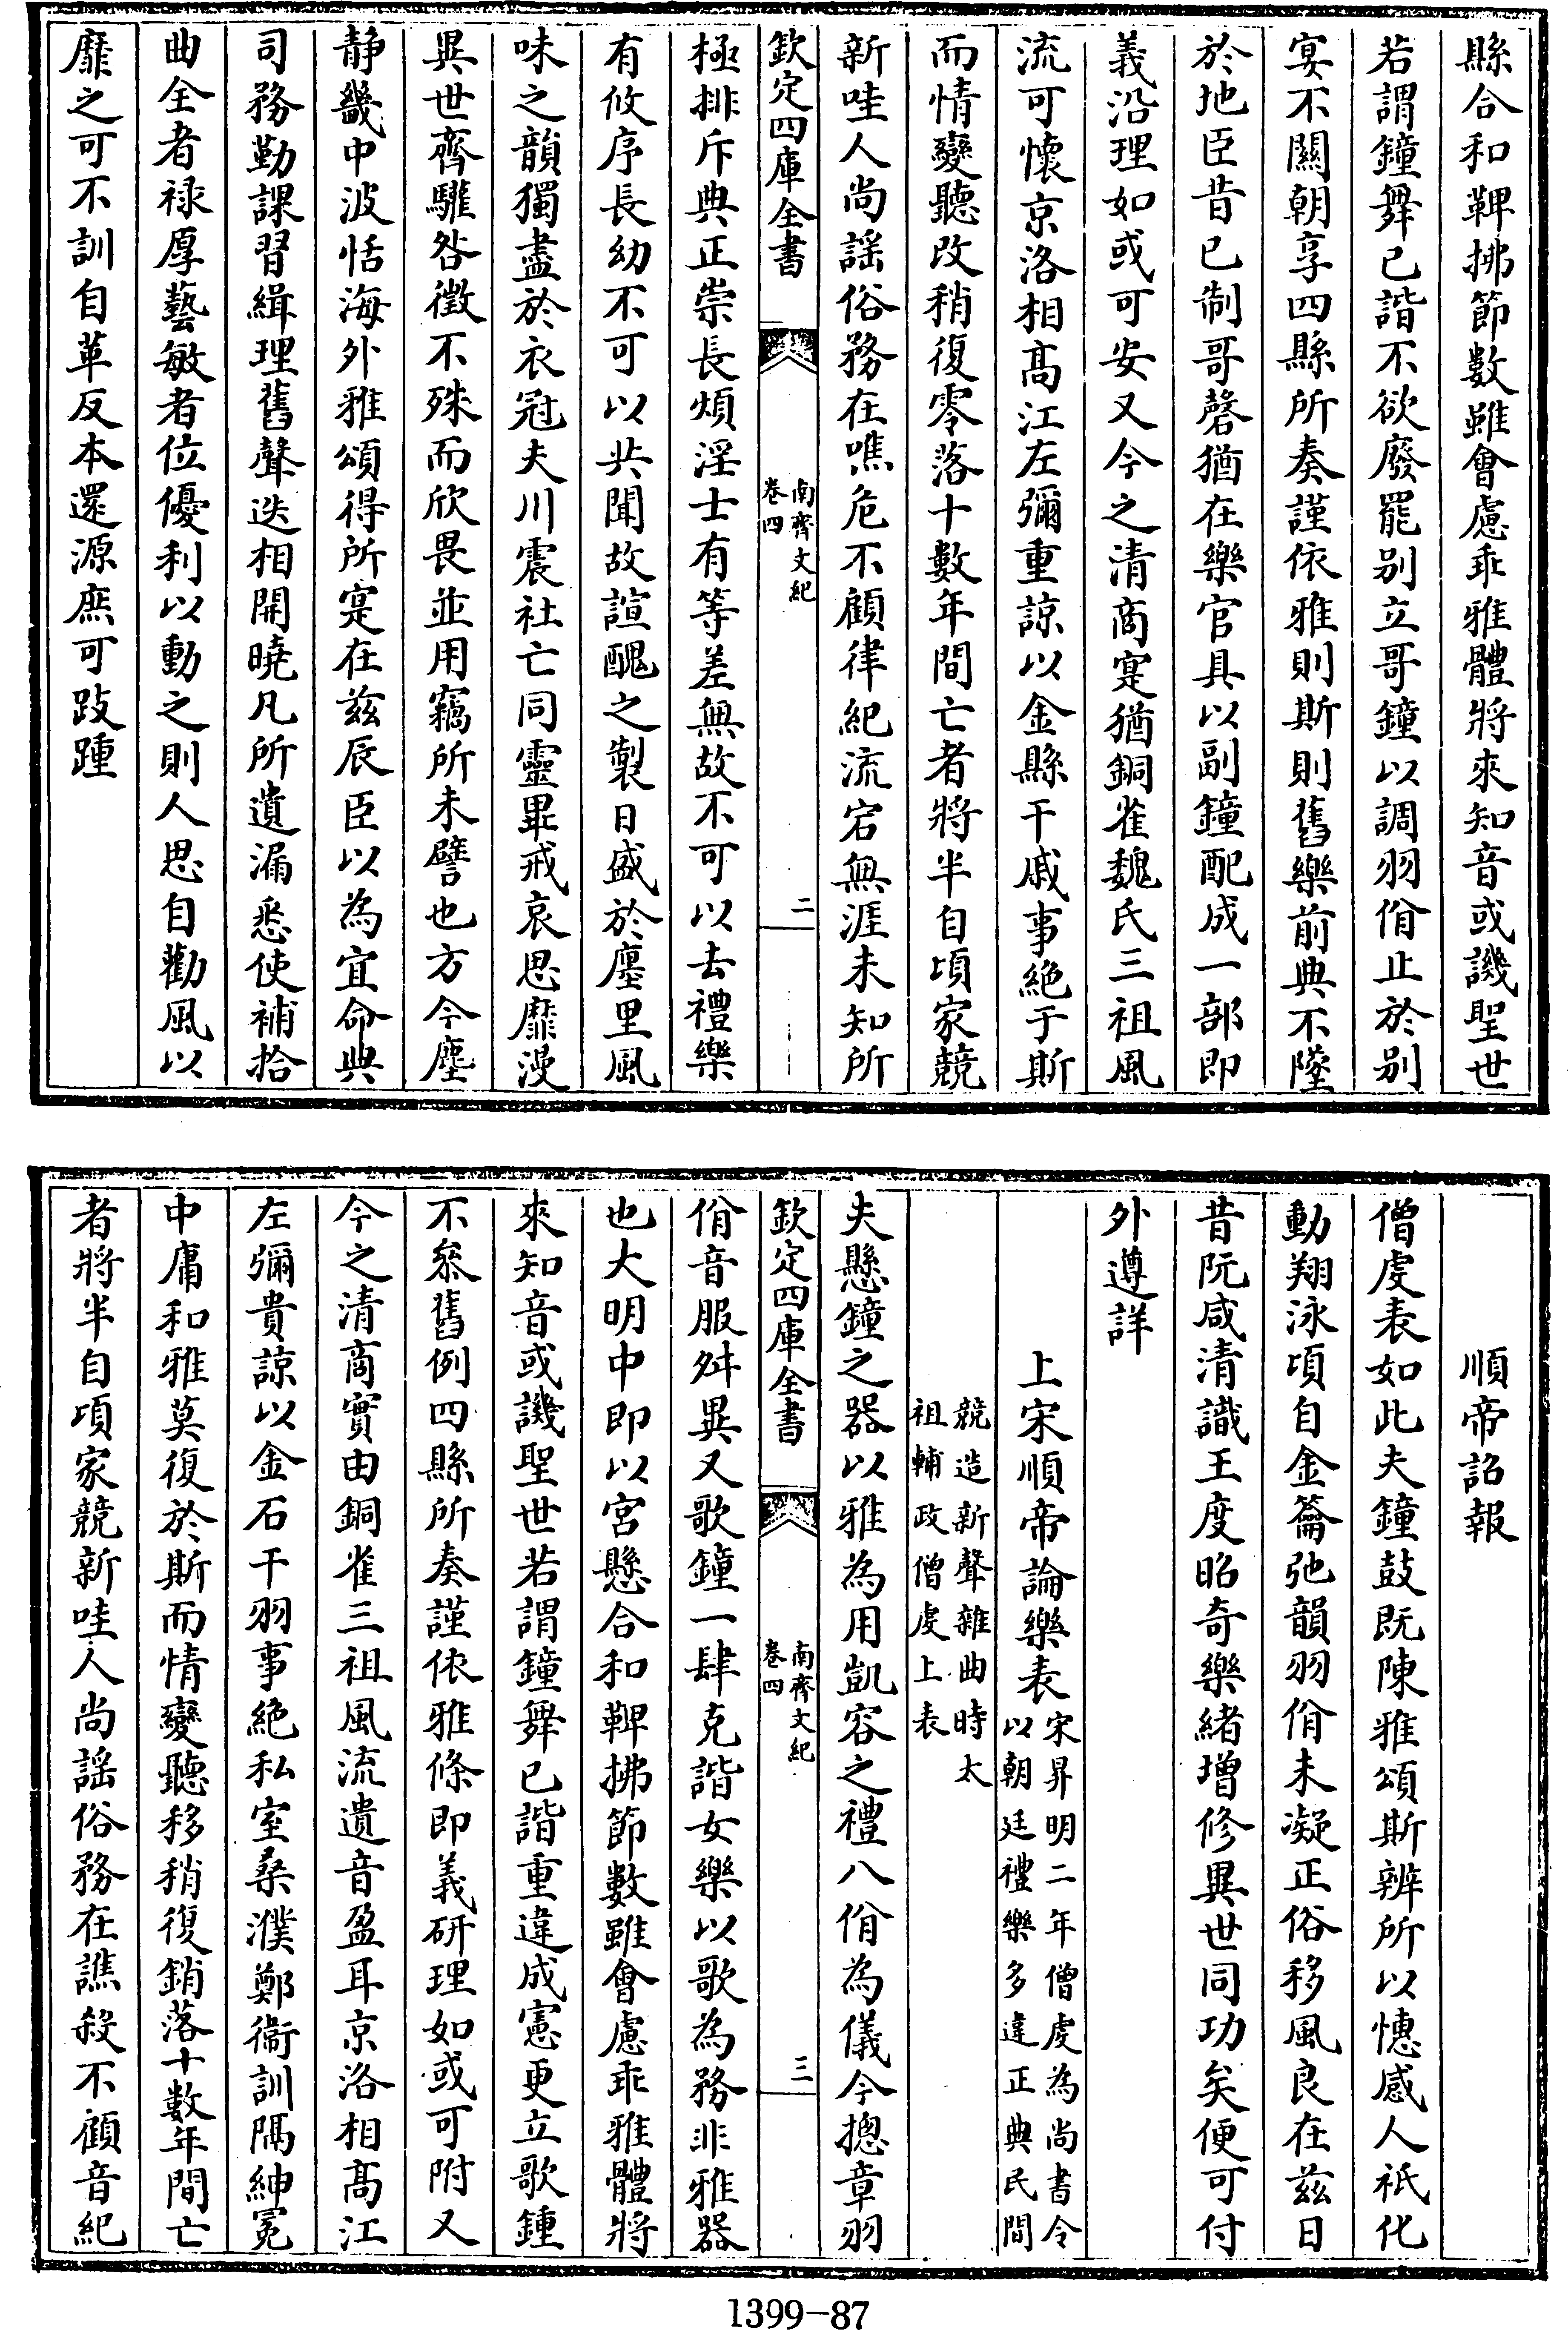 縣合和鞞拂節數雖會慮乖雅體將來知音或譏聖世
若謂鐘舞已諧不欲廢罷别立哥鐘以調羽佾止於别
宴不關朝享四縣所奏謹依雅則斯則舊樂前典不墜
於地臣昔已制哥磬猶在樂官具以副鐘配成一部即
義沿理如或可安又今之清商寔猶銅雀魏氏三祖風
流可懷京洛相高江左彌重諒以金縣干戚事絶于斯
而情變聽改稍復零落十數年間亡者將半自頃家競
新哇人尚謡俗務在噍危不顧律紀流宕無涯未知所
欽定四庫全書
南齊文紀
卷四
二
極排斥典正崇長煩淫士有等差無故不可以去禮樂
有攸序長幼不可以共聞故諠醜之製日盛於廛里風
味之韻獨盡於衣冠夫川震社亡同靈畢戒哀思靡漫
異世齊驩咎徵不殊而欣畏並用竊所未譬也方今塵
静畿中波恬海外雅頌得所寔在兹辰臣以為宜命典
司務勤課習緝理舊聲迭相開曉凡所遺漏悉使補拾
曲全者禄厚藝敏者位優利以動之則人思自勸風以
靡之可不訓自革反本還源庶可跂踵
順帝詔報
僧虔表如此夫鐘鼓既陳雅頌斯辨所以憓感人祇化
動翔泳頃自金籥弛韻羽佾未凝正俗移風良在兹日
昔阮咸清識王度昭奇樂緒增修異世同功矣便可付
外遵詳
上宋順帝論樂表宋昇明二年僧虔為尚書令
以朝廷禮樂多違正典民間
競造新聲雜曲時太
祖輔政僧虔上表
夫懸鐘之器以雅為用凱容之禮八佾為儀今摠章羽
欽定四庫全書
南齊文紀
卷四
三
佾音服舛異又歌鐘一肆克諧女樂以歌為務非雅器
也大明中即以宮懸合和鞞拂節數雖會慮乖雅體將
來知音或譏聖世若謂鐘舞已諧重違成憲更立歌鍾
不叅舊例四縣所奏謹依雅條即義研理如或可附又
今之清商實由銅雀三祖風流遺音盈耳京洛相高江
左彌貴諒以金石干羽事絶私室桑濮鄭衞訓隅紳冕
中庸和雅莫復於斯而情變聽移稍復銷落十數年間亡
者將半自頃家競新哇人尚謡俗務在譙殺不顧音紀
1399-87